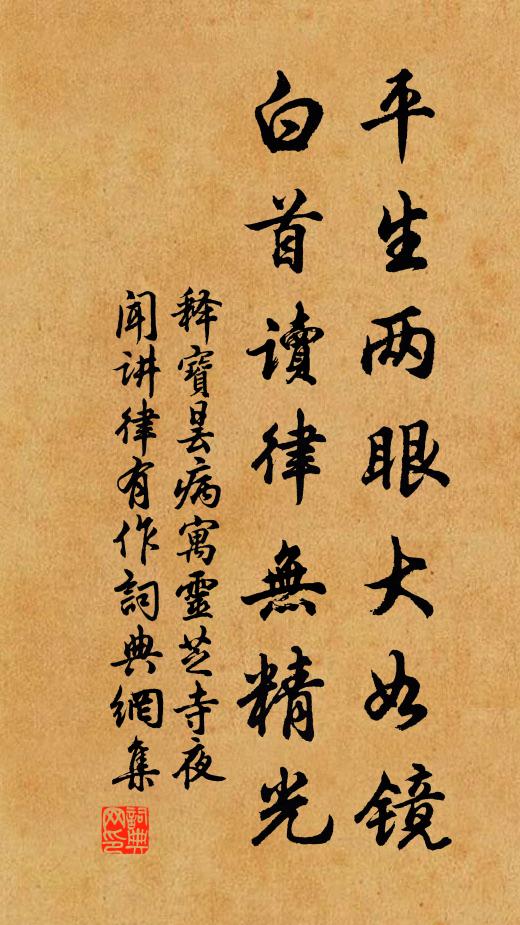 平生两眼大如镜
白首读律無精光
释寶昙病寓靈芝寺夜
闻讲律有作詞典網集
詞典网印